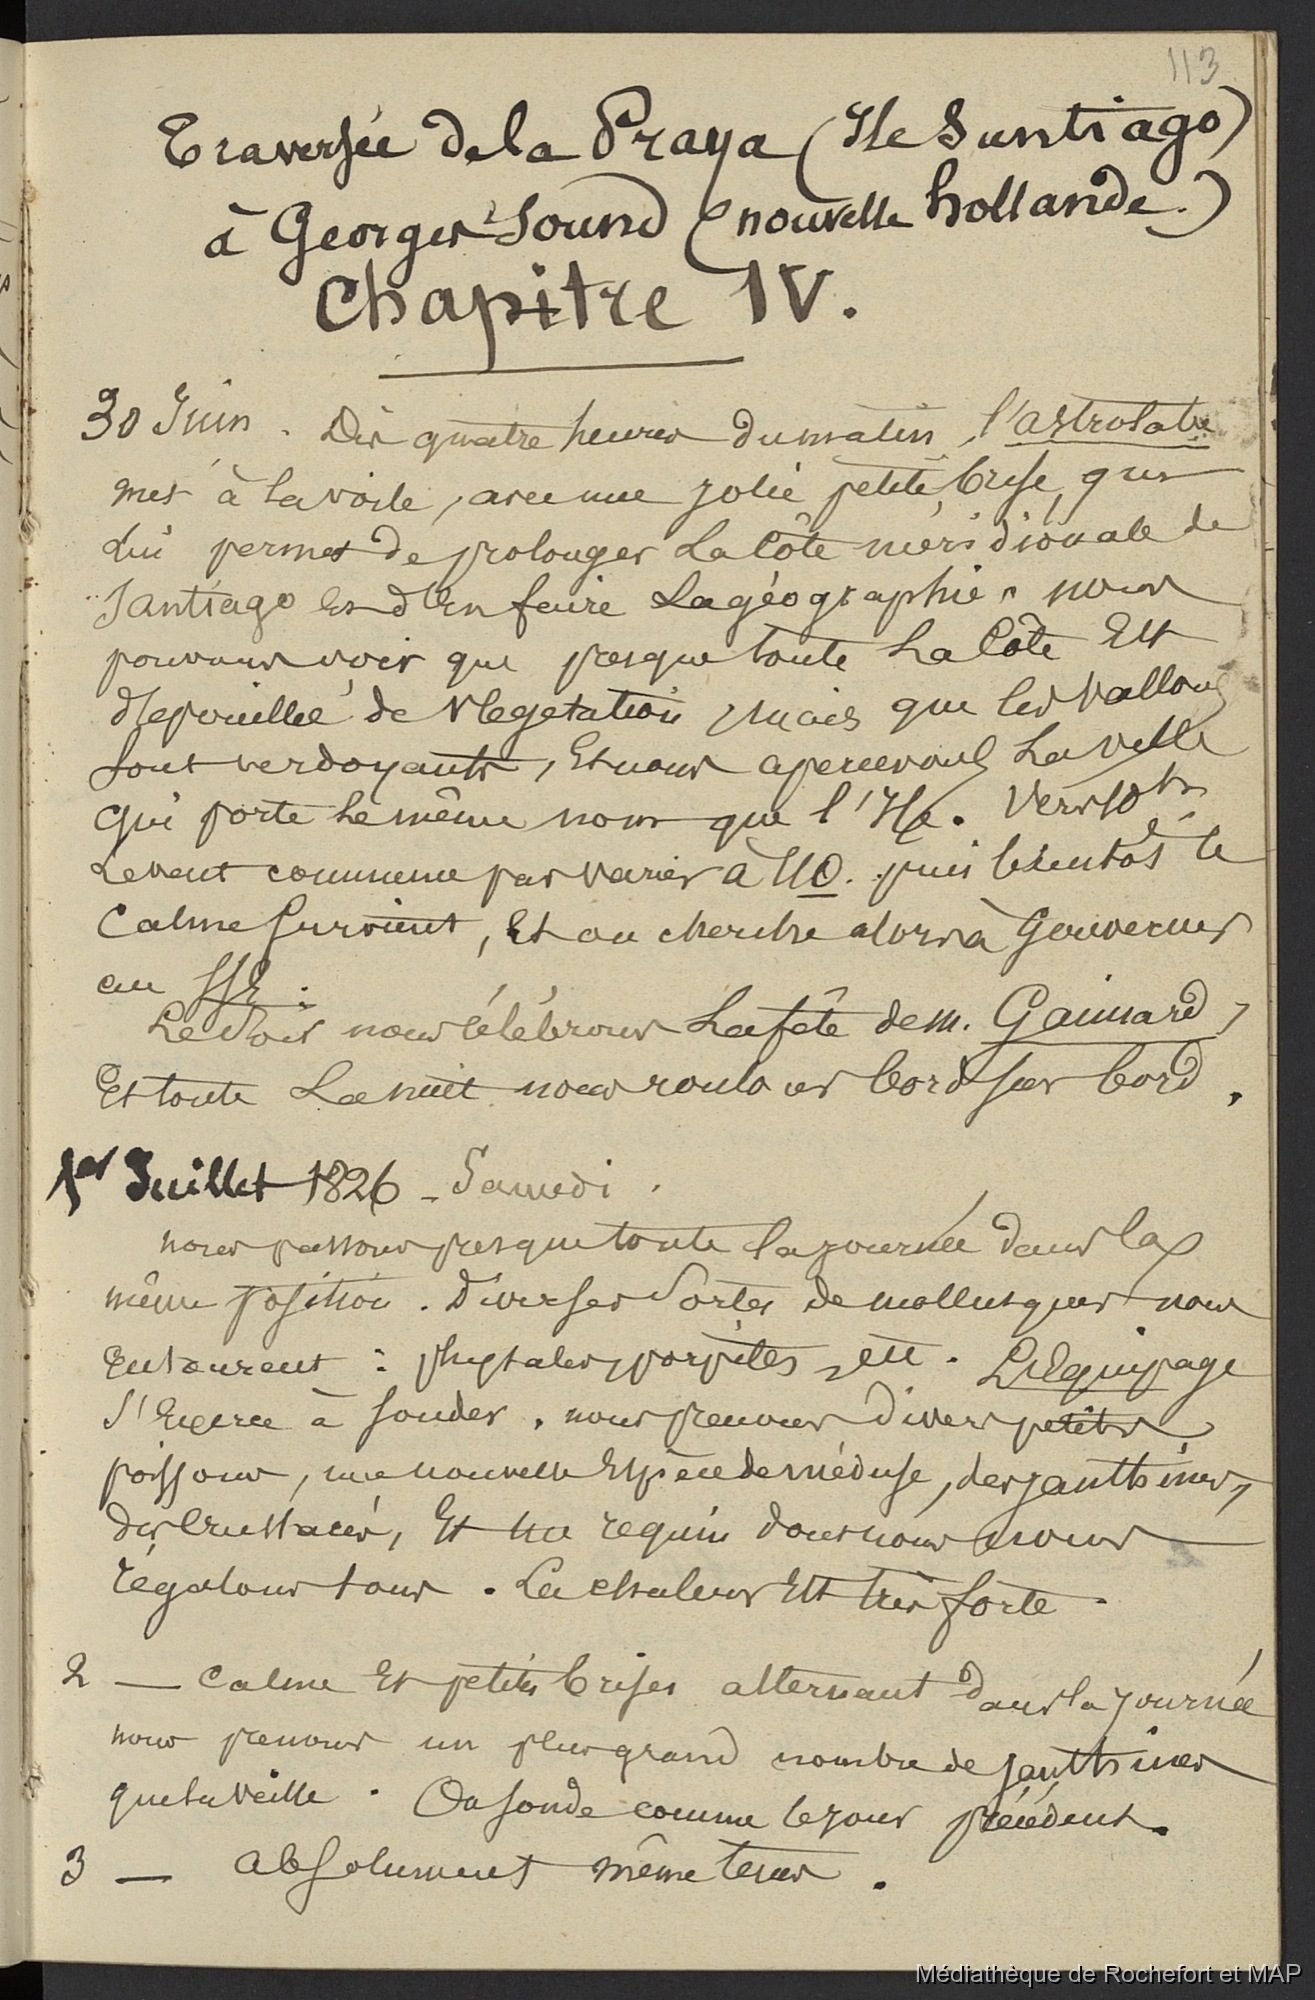 113
Traversée de la Praya (Ile Santiago)
à Georges Sound (nouvelle hollande.)
Chapitre IV.
30 Juin. Dès quatre heures du matin, l'astrolabe
met à la voile, avec une jolie petite brise, qui
lui permet de prolonger la Côte méridionale de
Santiago et d'en faire la géographie. nous
pouvons voir que presque toute la Côte Est
depouillée de vegetation, mais que les vallons
sont verdoyants, et nous apercevons la ville
qui porte le même nom que l'Ile. Vers 10 h
le vent commence par varier à l'10. puis bientôt le
calme survient, et on cherche alors à gouverner
au SSE.
Le soir nous célébrons la fête de m. Gaimard,
et toute la nuit nous roulons bord sur bord.
1er Juillet 1826 - Samedi.
nous passons presque toute la journée dans la
même position. Diverses sortes de mollusques nous
entourent : physales, porpites, etc. L'Equipage
s'exerce à sonder. nous prenons divers petits
poissons, une nouvelle espèce de méduse, des janthines,
des crustacés, et un requin dont nous nous
régalons tous. La chaleur est très forte.
2 — Calme et petites brises alternant dans la journée
nous prenons un plus grand nombre de janthines
que la veille. On sonde comme le jour précédent.
3 — absolument même temps.
Médiathèque de Rochefort et MAP